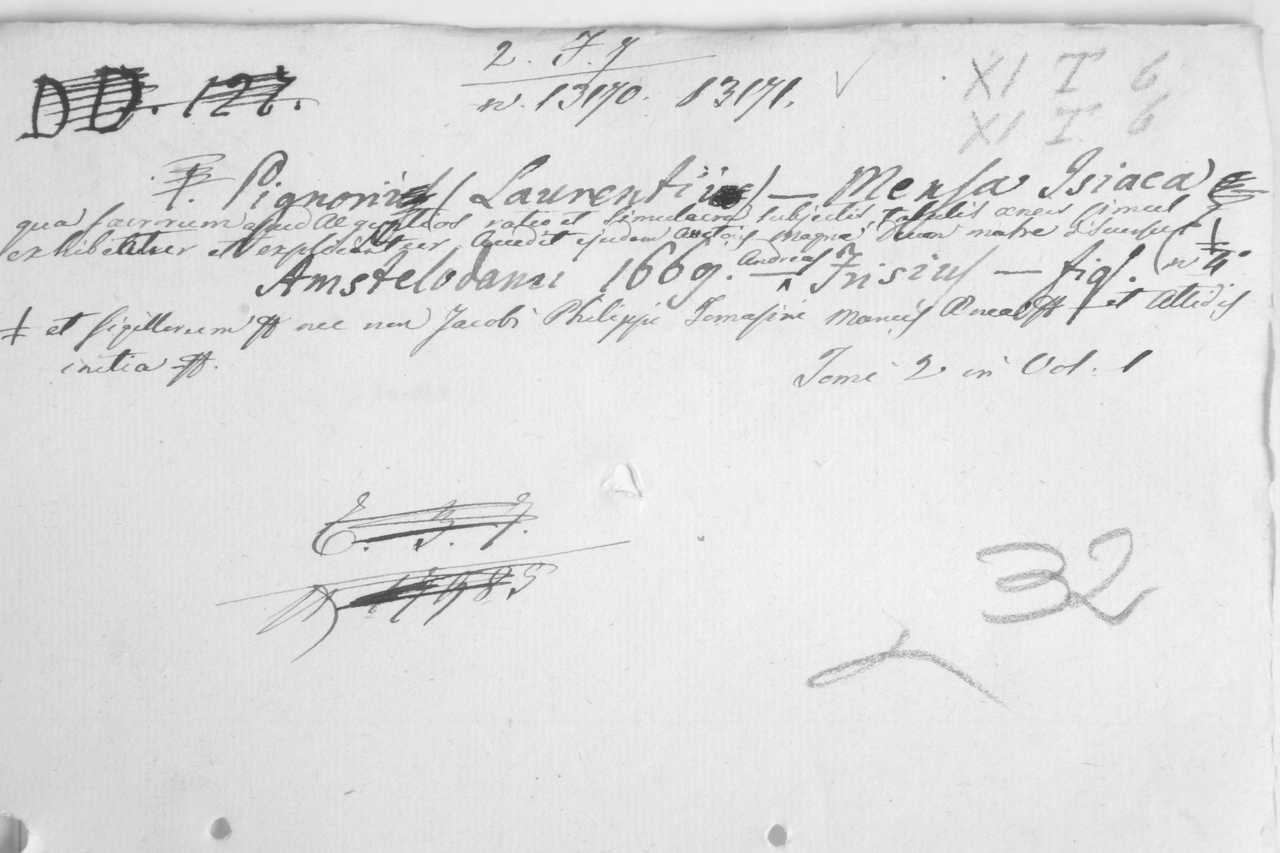 DD. 127.
2. F. 7
n. 13170. 13171.
XI T 6
XI T 6
Pignorii (Laurentii) — Mensa Isiaca
qua sacrorum apud Aegyptios ratio et simulacra subjectis tabulis aeneis simul
exhibentur et explicantur, Accedit ejusdem Auctoris Magnae Deum matre discursus
Amstelodami 1669. — Andreas Frisius — fig. (in 4°
‡ et sigillorum nec non Jacobi Philippi Tomasini manus Aeneae et
initia
Tomi 2 in Vol. 1
32